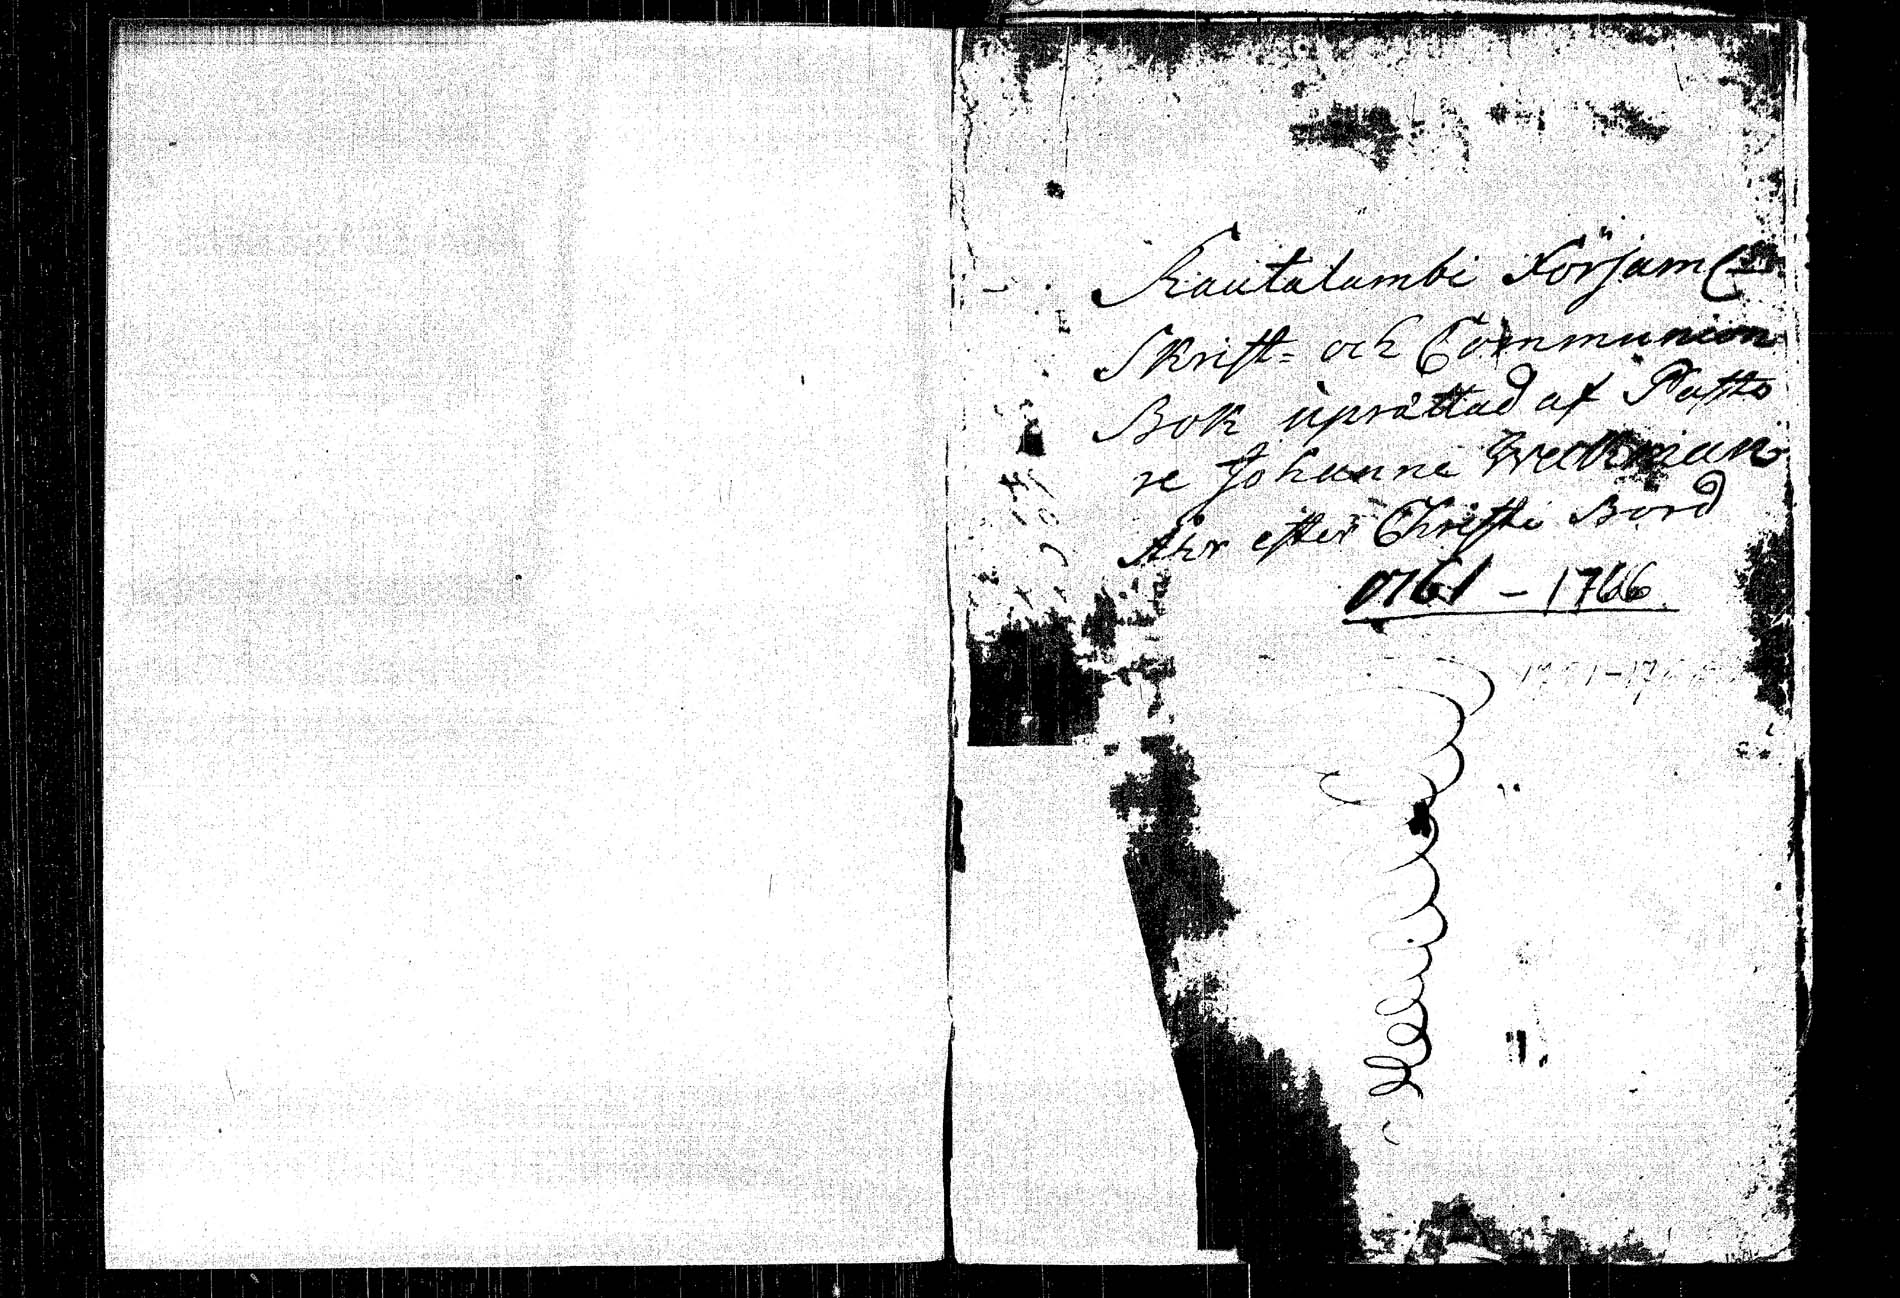 Rautalambi Församl
Skrift- och Communion
Bok uprättad af Pasto
re Johanne Weckman
Åhr efter Christi Bord
1761 – 1766
1761–176